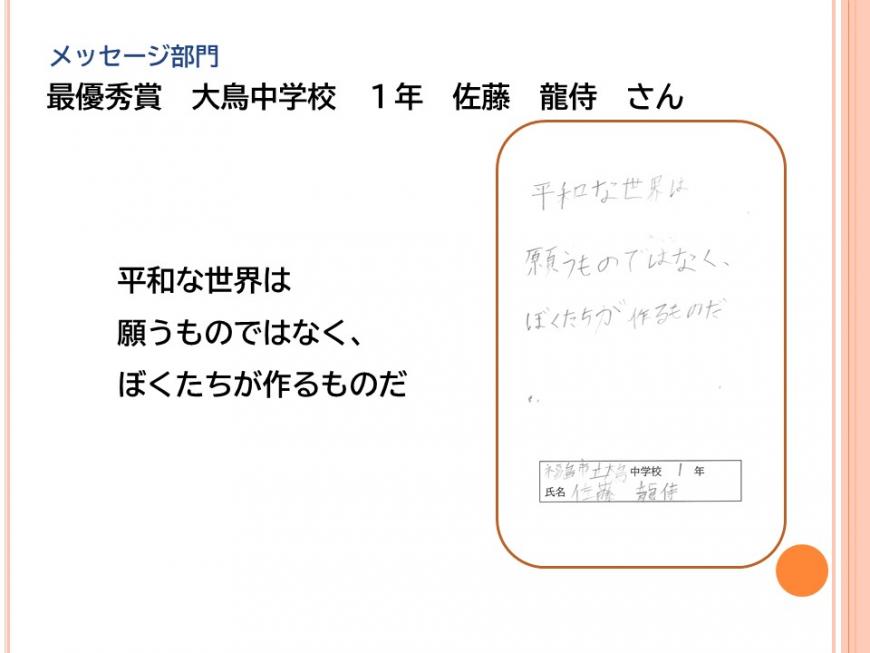 メッセージ部門
最優秀賞　大鳥中学校　１年　佐藤　龍侍　さん
平和な世界は
願うものではなく、
ぼくたちが作るものだ
平和な世界は
願うものではなく、
ぼくたちが作るものだ
福島市立大鳥中学校 1 年
氏名 佐藤 龍侍